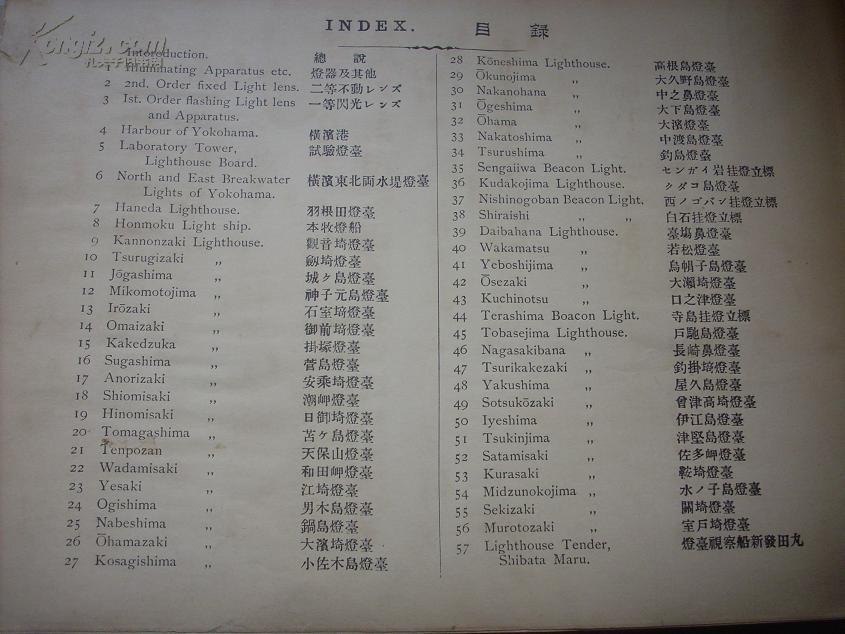 INDEX. 目 録
Intoroduction. 總說
1 Illuminating Apparatus etc. 燈器及其他
2 2nd. Order fixed Light lens. 二等不動レンズ
3 Ist. Order flashing Light lens 一等閃光レンズ
and Apparatus.
4 Harbour of Yokohama. 橫濱港
5 Laboratory Tower, 試驗燈臺
Lighthouse Board.
6 North and East Breakwater 橫濱東北両水堤燈臺
Lights of Yokohama.
7 Haneda Lighthouse. 羽根田燈臺
8 Honmoku Light ship. 本牧燈船
9 Kannonzaki Lighthouse. 觀音埼燈臺
10 Tsurugizaki „ 劔埼燈臺
11 Jōgashima „ 城ケ島燈臺
12 Mikomotojima „ 神子元島燈臺
13 Irōzaki „ 石室埼燈臺
14 Omaizaki „ 御前埼燈臺
15 Kakedzuka „ 掛塚燈臺
16 Sugashima „ 菅島燈臺
17 Anorizaki „ 安乘埼燈臺
18 Shiomisaki „ 潮岬燈臺
19 Hinomisaki „ 日御埼燈臺
20 Tomagashima „ 苫ケ島燈臺
21 Tenpozan „ 天保山燈臺
22 Wadamisaki „ 和田岬燈臺
23 Yesaki „ 江埼燈臺
24 Ogishima „ 男木島燈臺
25 Nabeshima „ 鍋島燈臺
26 Ōhamazaki „ 大濱埼燈臺
27 Kosagishima „ 小佐木島燈臺
28 Kōneshima Lighthouse. 高根島燈臺
29 Ōkunojima „ 大久野島燈臺
30 Nakanohana „ 中之鼻燈臺
31 Ōgeshima „ 大下島燈臺
32 Ōhama „ 大濱燈臺
33 Nakatoshima „ 中渡島燈臺
34 Tsurushima „ 釣島燈臺
35 Sengaiiwa Beacon Light. センガイ岩挂燈立標
36 Kudakojima Lighthouse. クダコ島燈臺
37 Nishinogoban Beacon Light. 西ノゴバン挂燈立標
38 Shiraishi „ „ 白石挂燈立標
39 Daibahana Lighthouse. 臺塲鼻燈臺
40 Wakamatsu „ 若松燈臺
41 Yeboshijima „ 烏帽子島燈臺
42 Ōsezaki „ 大瀨埼燈臺
43 Kuchinotsu „ 口之津燈臺
44 Terashima Boacon Light. 寺島挂燈立標
45 Tobasejima Lighthouse. 戸馳島燈臺
46 Nagasakibana „ 長崎鼻燈臺
47 Tsurikakezaki „ 釣掛埼燈臺
48 Yakushima „ 屋久島燈臺
49 Sotsukōzaki „ 曾津高埼燈臺
50 Iyeshima „ 伊江島燈臺
51 Tsukinjima „ 津堅島燈臺
52 Satamisaki „ 佐多岬燈臺
53 Kurasaki „ 鞍埼燈臺
54 Midzunokojima „ 水ノ子島燈臺
55 Sekizaki „ 關埼燈臺
56 Murotozaki „ 室戸埼燈臺
57 Lighthouse Tender, 燈臺視察船新發田丸
Shibata Maru.